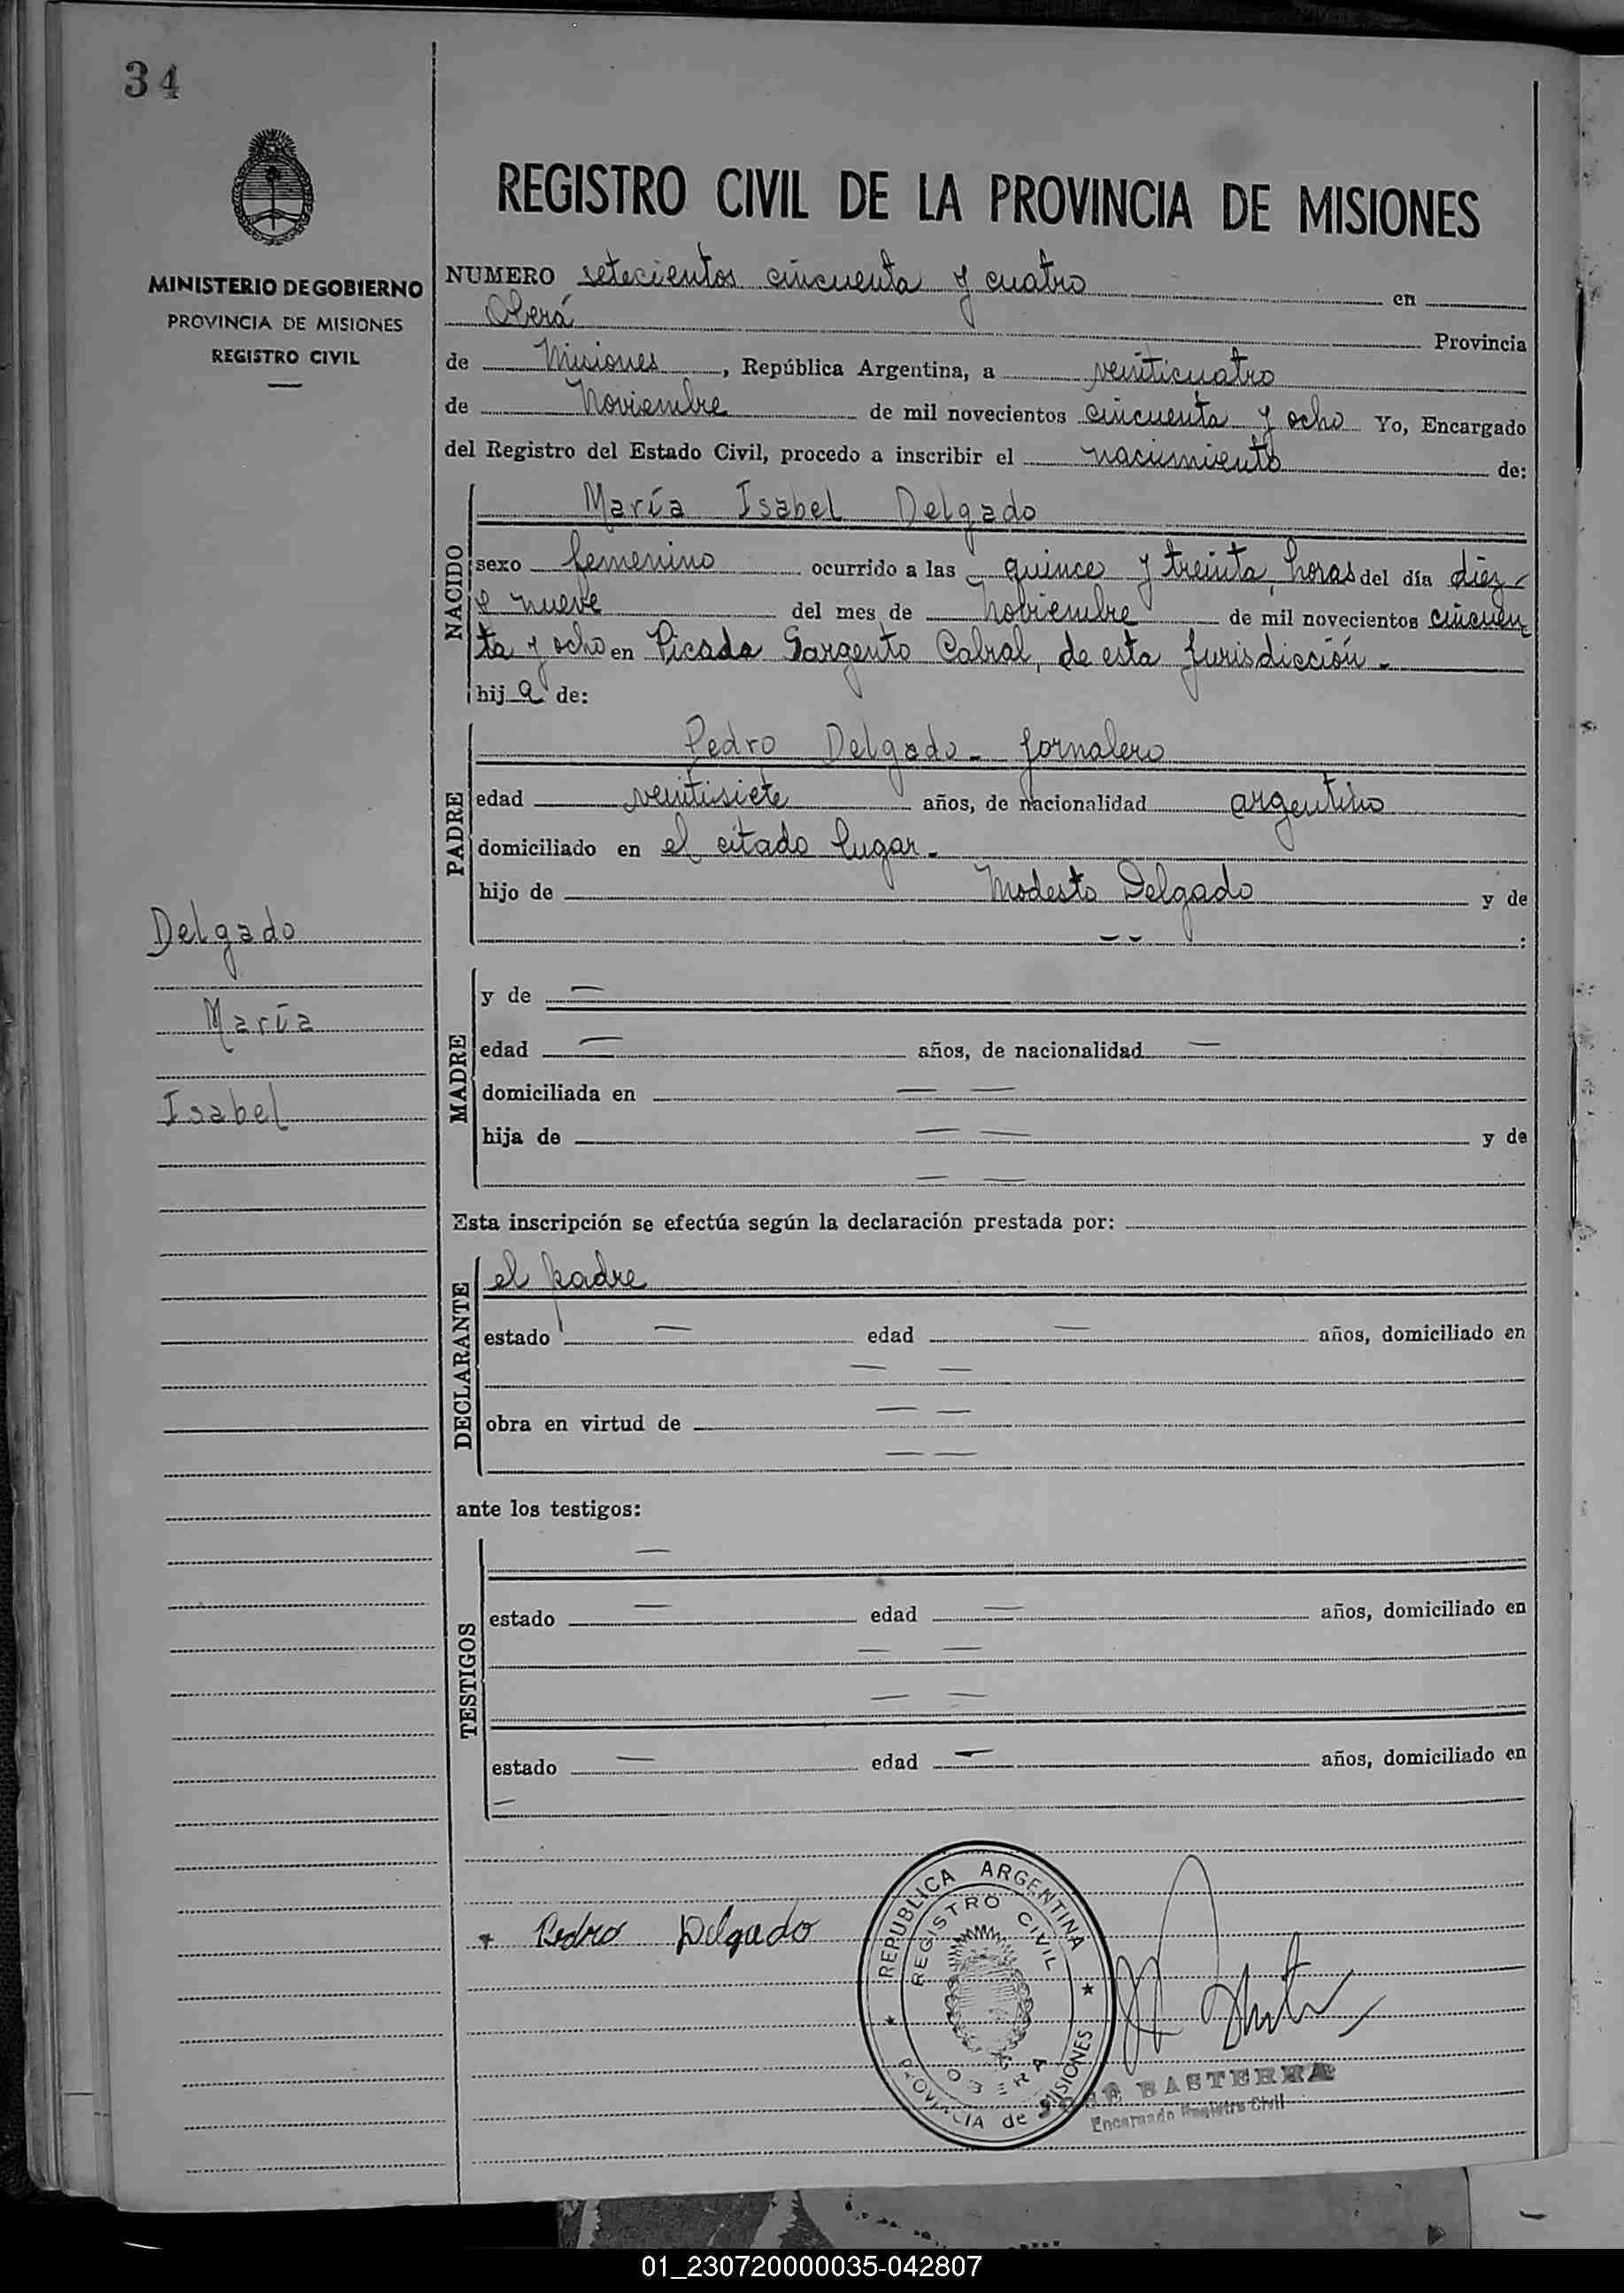 34
REGISTRO CIVIL DE LA PROVINCIA DE MISIONES
MINISTERIO DE GOBIERNO
PROVINCIA DE MISIONES
REGISTRO CIVIL
NUMERO setecientos cincuenta y cuatro en
Oberá Provincia
de Misiones, República Argentina, a veinticuatro
de Noviembre de mil novecientos cincuenta y ocho Yo, Encargado
del Registro del Estado Civil, procedo a inscribir el nacimiento de:
NACIDO
María Isabel Delgado
sexo femenino ocurrido a las quince y treinta horas del día diez
e nueve del mes de Nobiembre de mil novecientos cincuen
ta y ocho en Picada Sargento Cabral, de esta Jurisdicción.-
hija de:
PADRE
Pedro Delgado - Jornalero
edad veintisiete años, de nacionalidad argentino
domiciliado en el citado lugar.-
hijo de Modesto Delgado y de
— — :
Delgado
María
Isabel
MADRE
y de —
edad — años, de nacionalidad —
domiciliada en — —
hija de — — y de
— —
Esta inscripción se efectúa según la declaración prestada por:
DECLARANTE
el padre
estado — edad — años, domiciliado en
— —
obra en virtud de — —
— —
ante los testigos:
TESTIGOS
—
estado — edad — años, domiciliado en
— —
— —
estado — edad — años, domiciliado en
—
Pedro Delgado
REPUBLICA ARGENTINA
REGISTRO CIVIL
OBERA
PROVINCIA de MISIONES
JOSE BASTERRA
Encargado Registro Civil
01_230720000035-042807